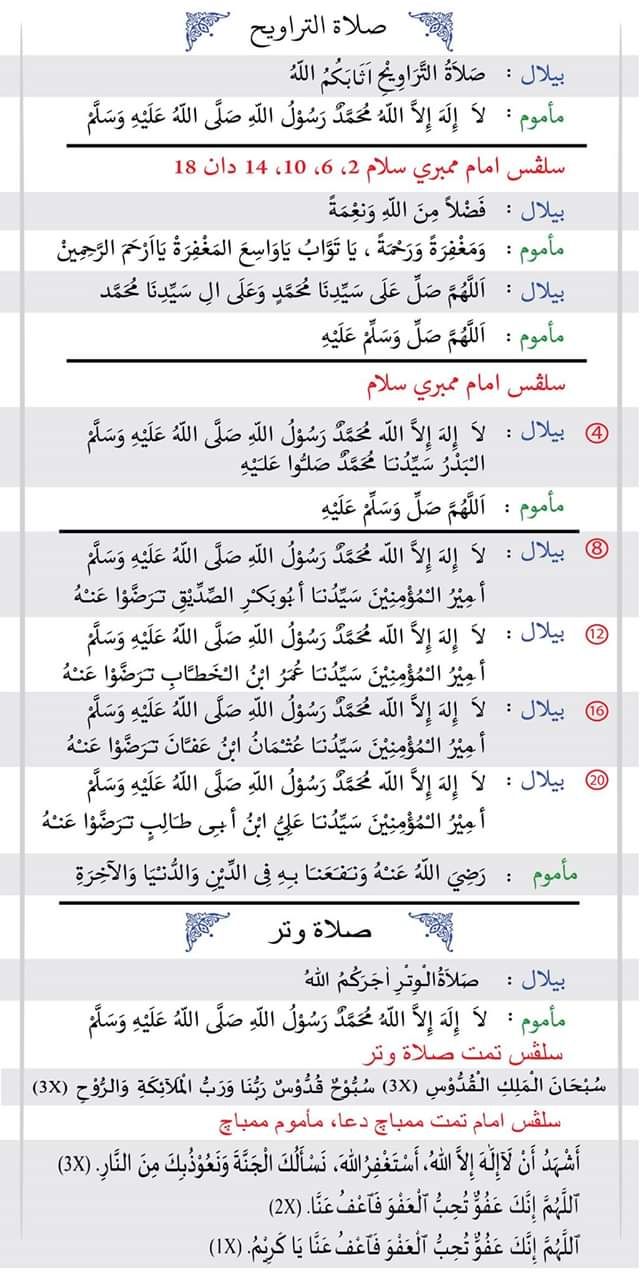 صلاة التراويح
بيلال : صَلاَةُ التَّرَاوِيْحِ اَثَابَكُمُ اللّٰهُ
مأموم : لاَ إِلَهَ إِلاَّ اللّٰهُ مُحَمَّدٌ رَسُوْلُ اللّٰهِ صَلَّى اللّٰهُ عَلَيْهِ وَسَلَّمْ
سلڤس امام ممبري سلام 2، 6، 10، 14 دان 18
بيلال : فَضْلاً مِنَ اللّٰهِ وَنِعْمَةً
مأموم : وَمَغْفِرَةً وَرَحْمَةً ، يَا تَوَّابُ يَاوَاسِعَ المَغْفِرَةْ يَااَرْحَمَ الرَّحِمِيْنْ
بيلال : اَللَّهُمَّ صَلِّ عَلَى سَيِّدِنَا مُحَمَّدٍ وَعَلَى الِ سَيِّدِنَا مُحَمَّد
مأموم : اَللَّهُمَّ صَلِّ وَسَلِّمْ عَلَيْهِ
سلڤس امام ممبري سلام
④ بيلال : لاَ إِلهَ إِلاَّ اللّٰه مُحَمَّدٌ رَسُوْلُ اللّٰهِ صَلَّى اللّٰهُ عَلَيْهِ وَسَلَّمْ
الـْبَدْرُ سَيِّدُنـَا مُحَمَّدٌ صَلـُّوا عَلـَيْهِ
مأموم : اَللَّهُمَّ صَلِّ وَسَلِّمْ عَلَيْهِ
⑧ بيلال : لاَ إِلهَ إِلاَّ اللّٰه مُحَمَّدٌ رَسُوْلُ اللّٰهِ صَلَّى اللّٰهُ عَلَيْهِ وَسَلَّمْ
أَمِيْرُ الـْمُؤْمِنِيْنَ سَيِّدُنـَا أَبُوبَكـْرِ الصِّدِّيْقِ تـَرَضَّوْا عَنـْهُ
⑫ بيلال : لاَ إِلهَ إِلاَّ اللّٰه مُحَمَّدٌ رَسُوْلُ اللّٰهِ صَلَّى اللّٰهُ عَلَيْهِ وَسَلَّمْ
أَمِيْرُ الـْمُؤْمِنِيْنَ سَيِّدُنـَا عُمَرُ ابْنُ الـْخَطـَّابِ تـَرَضَّوْا عَنـْهُ
⑯ بيلال : لاَ إِلهَ إِلاَّ اللّٰه مُحَمَّدٌ رَسُوْلُ اللّٰهِ صَلَّى اللّٰهُ عَلَيْهِ وَسَلَّمْ
أَمِيْرُ الـْمُؤْمِنِيْنَ سَيِّدُنـَا عُثـْمَانُ ابْنُ عَفـَّانَ تـَرَضَّوْا عَنـْهُ
⑳ بيلال : لاَ إِلهَ إِلاَّ اللّٰه مُحَمَّدٌ رَسُوْلُ اللّٰهِ صَلَّى اللّٰهُ عَلَيْهِ وَسَلَّمْ
أَمِيْرُ الـْمُؤْمِنِيْنَ سَيِّدُنـَا عَلِيُّ ابْنُ أَبِى طـَالِبٍ تـَرَضَّوْا عَنـْهُ
مأموم : رَضِيَ اللّٰهُ عَنـْهُ وَنـَفـَعَنـَا بـِهِ فِى الدِّيْنِ وَالدُّنـْيَا وَالآخِرَةِ
صلاة وتر
بيلال : صَلاَةُ الـْوِتـْرِ اَجَرَكُمُ اللهُ
مأموم : لاَ إِلَهَ إِلاَّ اللّٰهُ مُحَمَّدٌ رَسُوْلُ اللّٰهِ صَلَّى اللّٰهُ عَلَيْهِ وَسَلَّمْ
سلڤس تمت صلاة وتر
سُبْحَانَ الـْمَلِكِ الـْقُدُّوْسِ (3X) سُبُّوْحٌ قُدُّوْسٌ رَبُّنَا وَرَبُّ الْمَلآئِكَةِ وَالرُّوْحِ (3X)
سلڤس امام تمت ممباچ دعا، مأموم ممباچ
أَشْهَدُ أَنْ لَآإِلَٰهَ إِلاَّ اللهُ، أَسْتَغْفِرُاللهَ، نَسْأَلُكَ الْجَنَّةَ وَنَعُوْذُبِكَ مِنَ النَّارِ. (3X)
اَللَّهُمَّ إِنَّكَ عَفُوٌّ تُحِبُّ ٱلْعَفْوَ فَٱعْفُ عَنَّا. (2X)
اَللَّهُمَّ إِنَّكَ عَفُوٌّ تُحِبُّ ٱلْعَفْوَ فَٱعْفُ عَنَّا يَا كَرِيْمُ. (1X)